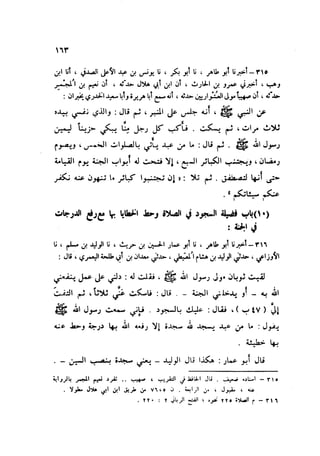 ١٦٣
٣١٥ – أخبرنا أبو طاهر ، نا أبو بكر ، نا يونس بن عبد الأعلى الصدفي ، أنا ابن
وهب ، أخبرني عمرو بن الحارث ، أن ابن أبي هلال حدثه ، أن نعيم بن المجمر
حدثه ، أن صهيباً مولى العتواريين حدثه ، أنه سمع أبا هريرة وأبا سعيد الخدري يخبران :
عن النبي ﷺ أنه جلس على المنبر ، ثم قال : والذي نفسي بيده
ثلاث مرات ، ثم سكت . فأكب كل رجل منّا يبكي حزيناً ليمين
رسول الله ﷺ . ثم قال : ما من عبد يأتي بالصلوات الخمس ، ويصوم
رمضان ، ويجتنب الكبائر السبع ، إلا فتحت له أبواب الجنة يوم القيامة
حتى إنها لتصطفق . ثم تلا : ( إن تجتنبوا كبائر ما تنهون عنه نكفر
عنكم سيئاتكم ) .
(١٠) باب فضيلة السجود في الصلاة وحط الخطايا بها مع رفع الدرجات
في الجنة :
٣١٦ – أخبرنا أبو طاهر ، نا أبو بكر ، نا أبو عمار الحسين بن حريث ، نا الوليد بن مسلم ، نا
الأوزاعي ، حدثني الوليد بن هشام المُعَيطي ، حدثني معدان بن أبي طلحة اليعمري ، قال :
لقيت ثوبان مولى رسول الله ﷺ فقلت له : دلني على عمل ينفعني
الله به – أو يدخلني الجنة – . قال : فسكت عني ثلاثاً ، ثم التفت
إليّ (٤٧ ب) ، فقال : عليك بالسجود . فإني سمعت رسول الله ﷺ
يقول : ما من عبد يسجد لله سجدة إلا رفعه الله بها درجة وحط عنه
بها خطيئة .
قال أبو عمار : هكذا قال الوليد – يعني سجدة بنصب السين – .
٣١٥ – اسناده ضعيف . قال الحافظ في التقريب ، صهيب .. تفرد نعيم المجمر بالرواية
عنه ، مقبول ، من الرابعة . ن ٥ : ٧ من طريق ابن أبي هلال مطولاً .
٣١٦ – م الصلاة ٢٢٥ نحوه ؛ الفتح الرباني ٢ : ٢٢٠ .